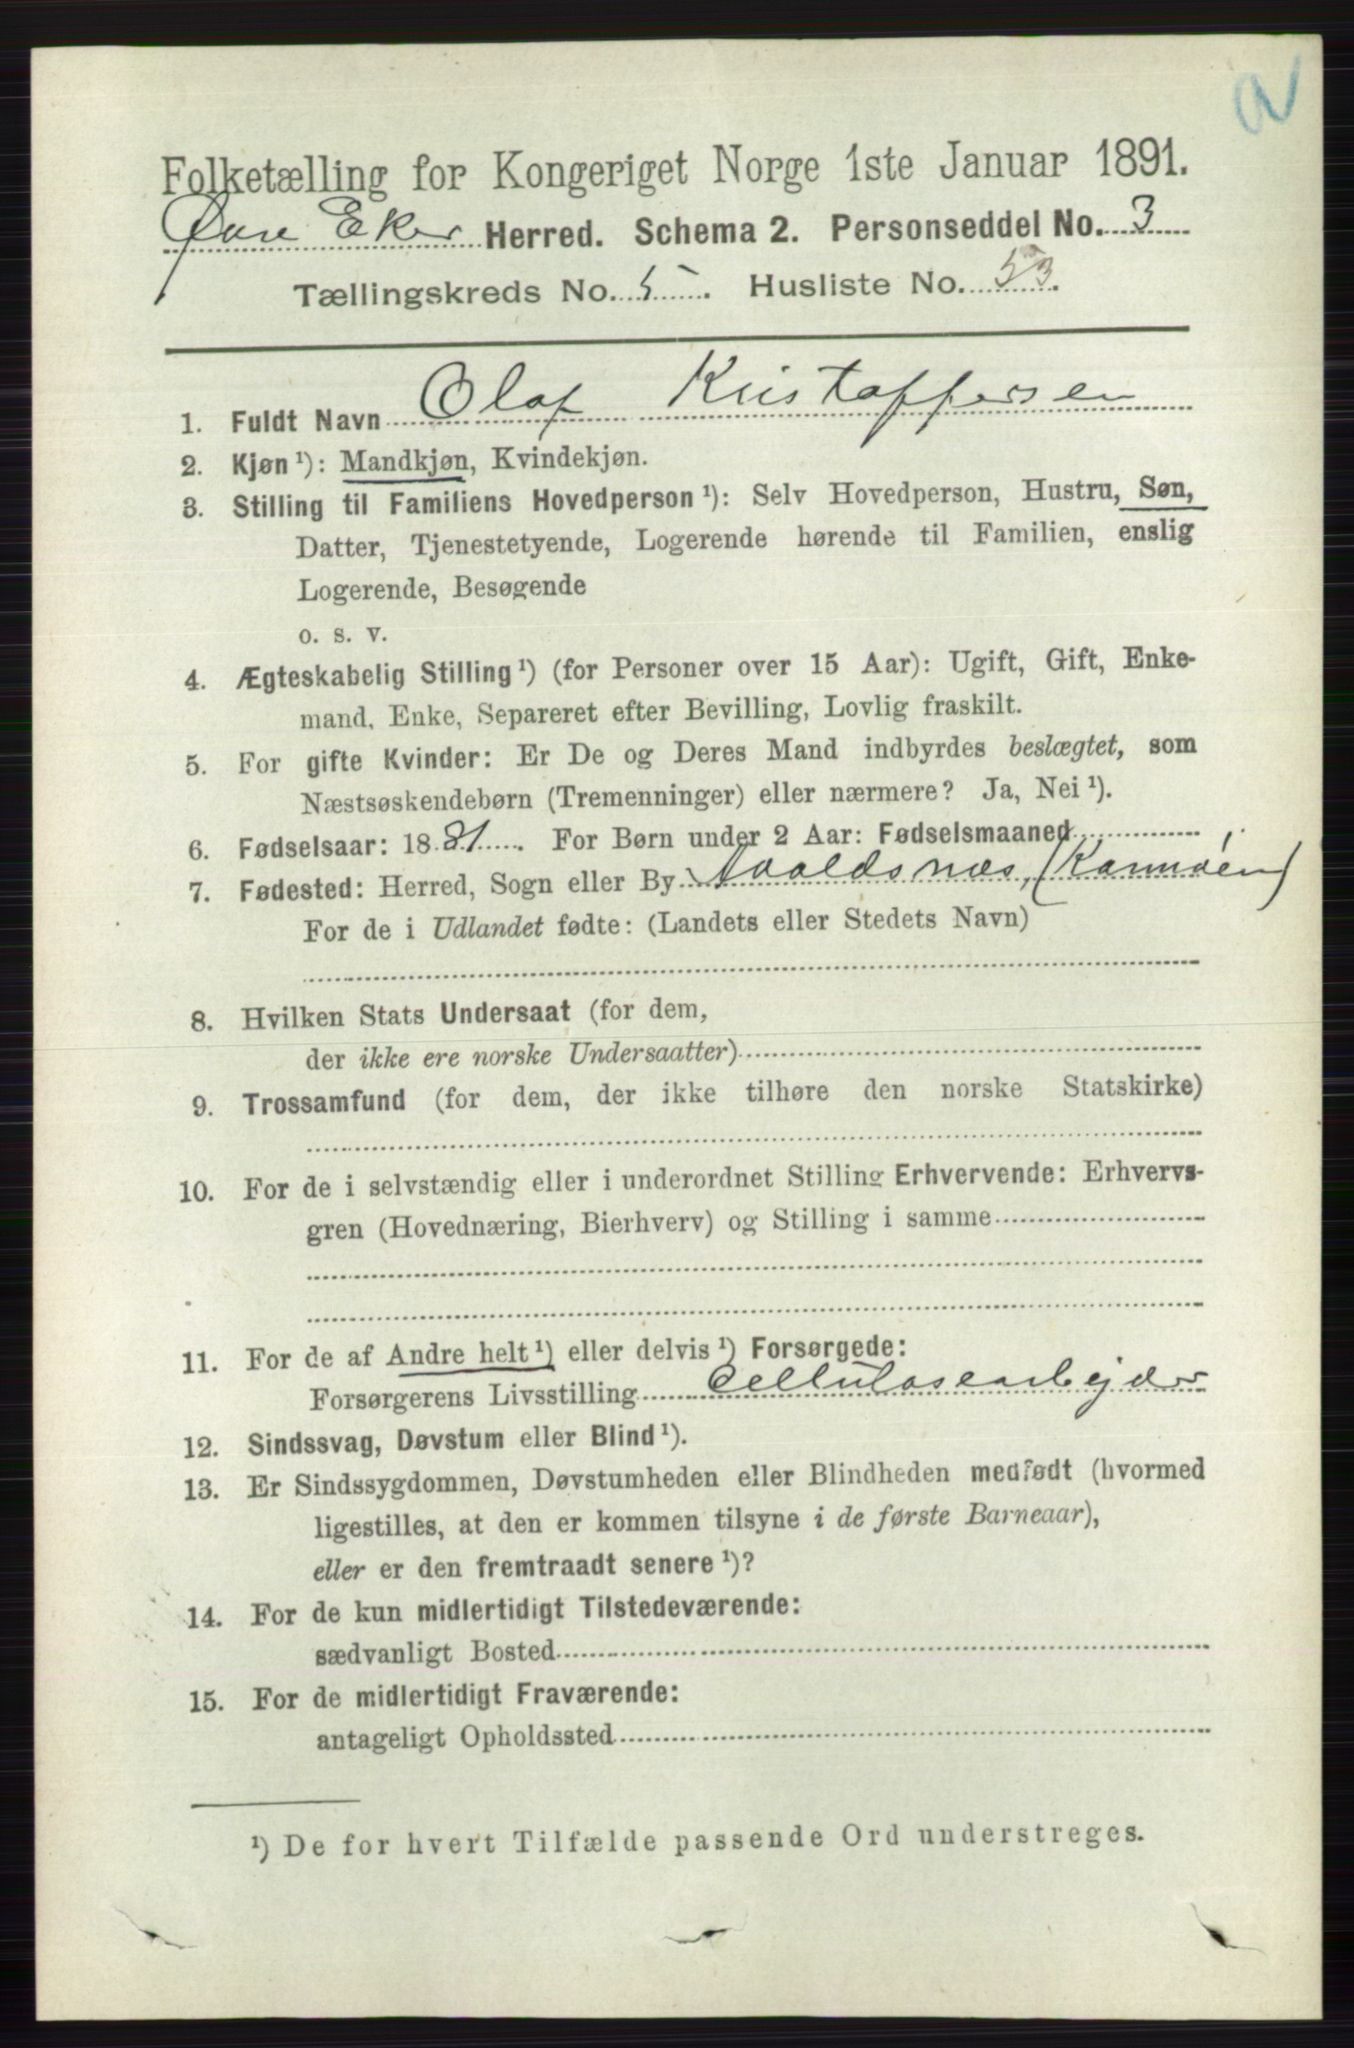 a
Folketælling for Kongeriget Norge 1ste Januar 1891.
Øvre Eker Herred. Schema 2. Personseddel No. 3
Tællingskreds No. 5. Husliste No. 53.
1. Fuldt Navn Olaf Kristoffersen
2. Kjøn ¹): Mandkjøn, Kvindekjøn.
3. Stilling til Familiens Hovedperson ¹): Selv Hovedperson, Hustru, Søn,
Datter, Tjenestetyende, Logerende hørende til Familien, enslig
Logerende, Besøgende
o. s. v.
4. Ægteskabelig Stilling ¹) (for Personer over 15 Aar): Ugift, Gift, Enke-
mand, Enke, Separeret efter Bevilling, Lovlig fraskilt.
5. For gifte Kvinder: Er De og Deres Mand indbyrdes beslægtet, som
Næstsøskendebørn (Tremenninger) eller nærmere? Ja, Nei ¹).
6. Fødselsaar: 1881. For Børn under 2 Aar: Fødselsmaaned
7. Fødested: Herred, Sogn eller By Avaldsnæs, (Karmøen)
For de i Udlandet fødte: (Landets eller Stedets Navn)
8. Hvilken Stats Undersaat (for dem,
der ikke ere norske Undersaatter)
9. Trossamfund (for dem, der ikke tilhøre den norske Statskirke)
10. For de i selvstændig eller i underordnet Stilling Erhvervende: Erhvervs-
gren (Hovednæring, Bierhverv) og Stilling i samme
11. For de af Andre helt ¹) eller delvis ¹) Forsørgede:
Forsørgerens Livsstilling Cellulosearbejder
12. Sindssvag, Døvstum eller Blind ¹).
13. Er Sindssygdommen, Døvstumheden eller Blindheden medfødt (hvormed
ligestilles, at den er kommen tilsyne i de første Barneaar),
eller er den fremtraadt senere ¹)?
14. For de kun midlertidigt Tilstedeværende:
sædvanligt Bosted
15. For de midlertidigt Fraværende:
antageligt Opholdssted
¹) De for hvert Tilfælde passende Ord understreges.